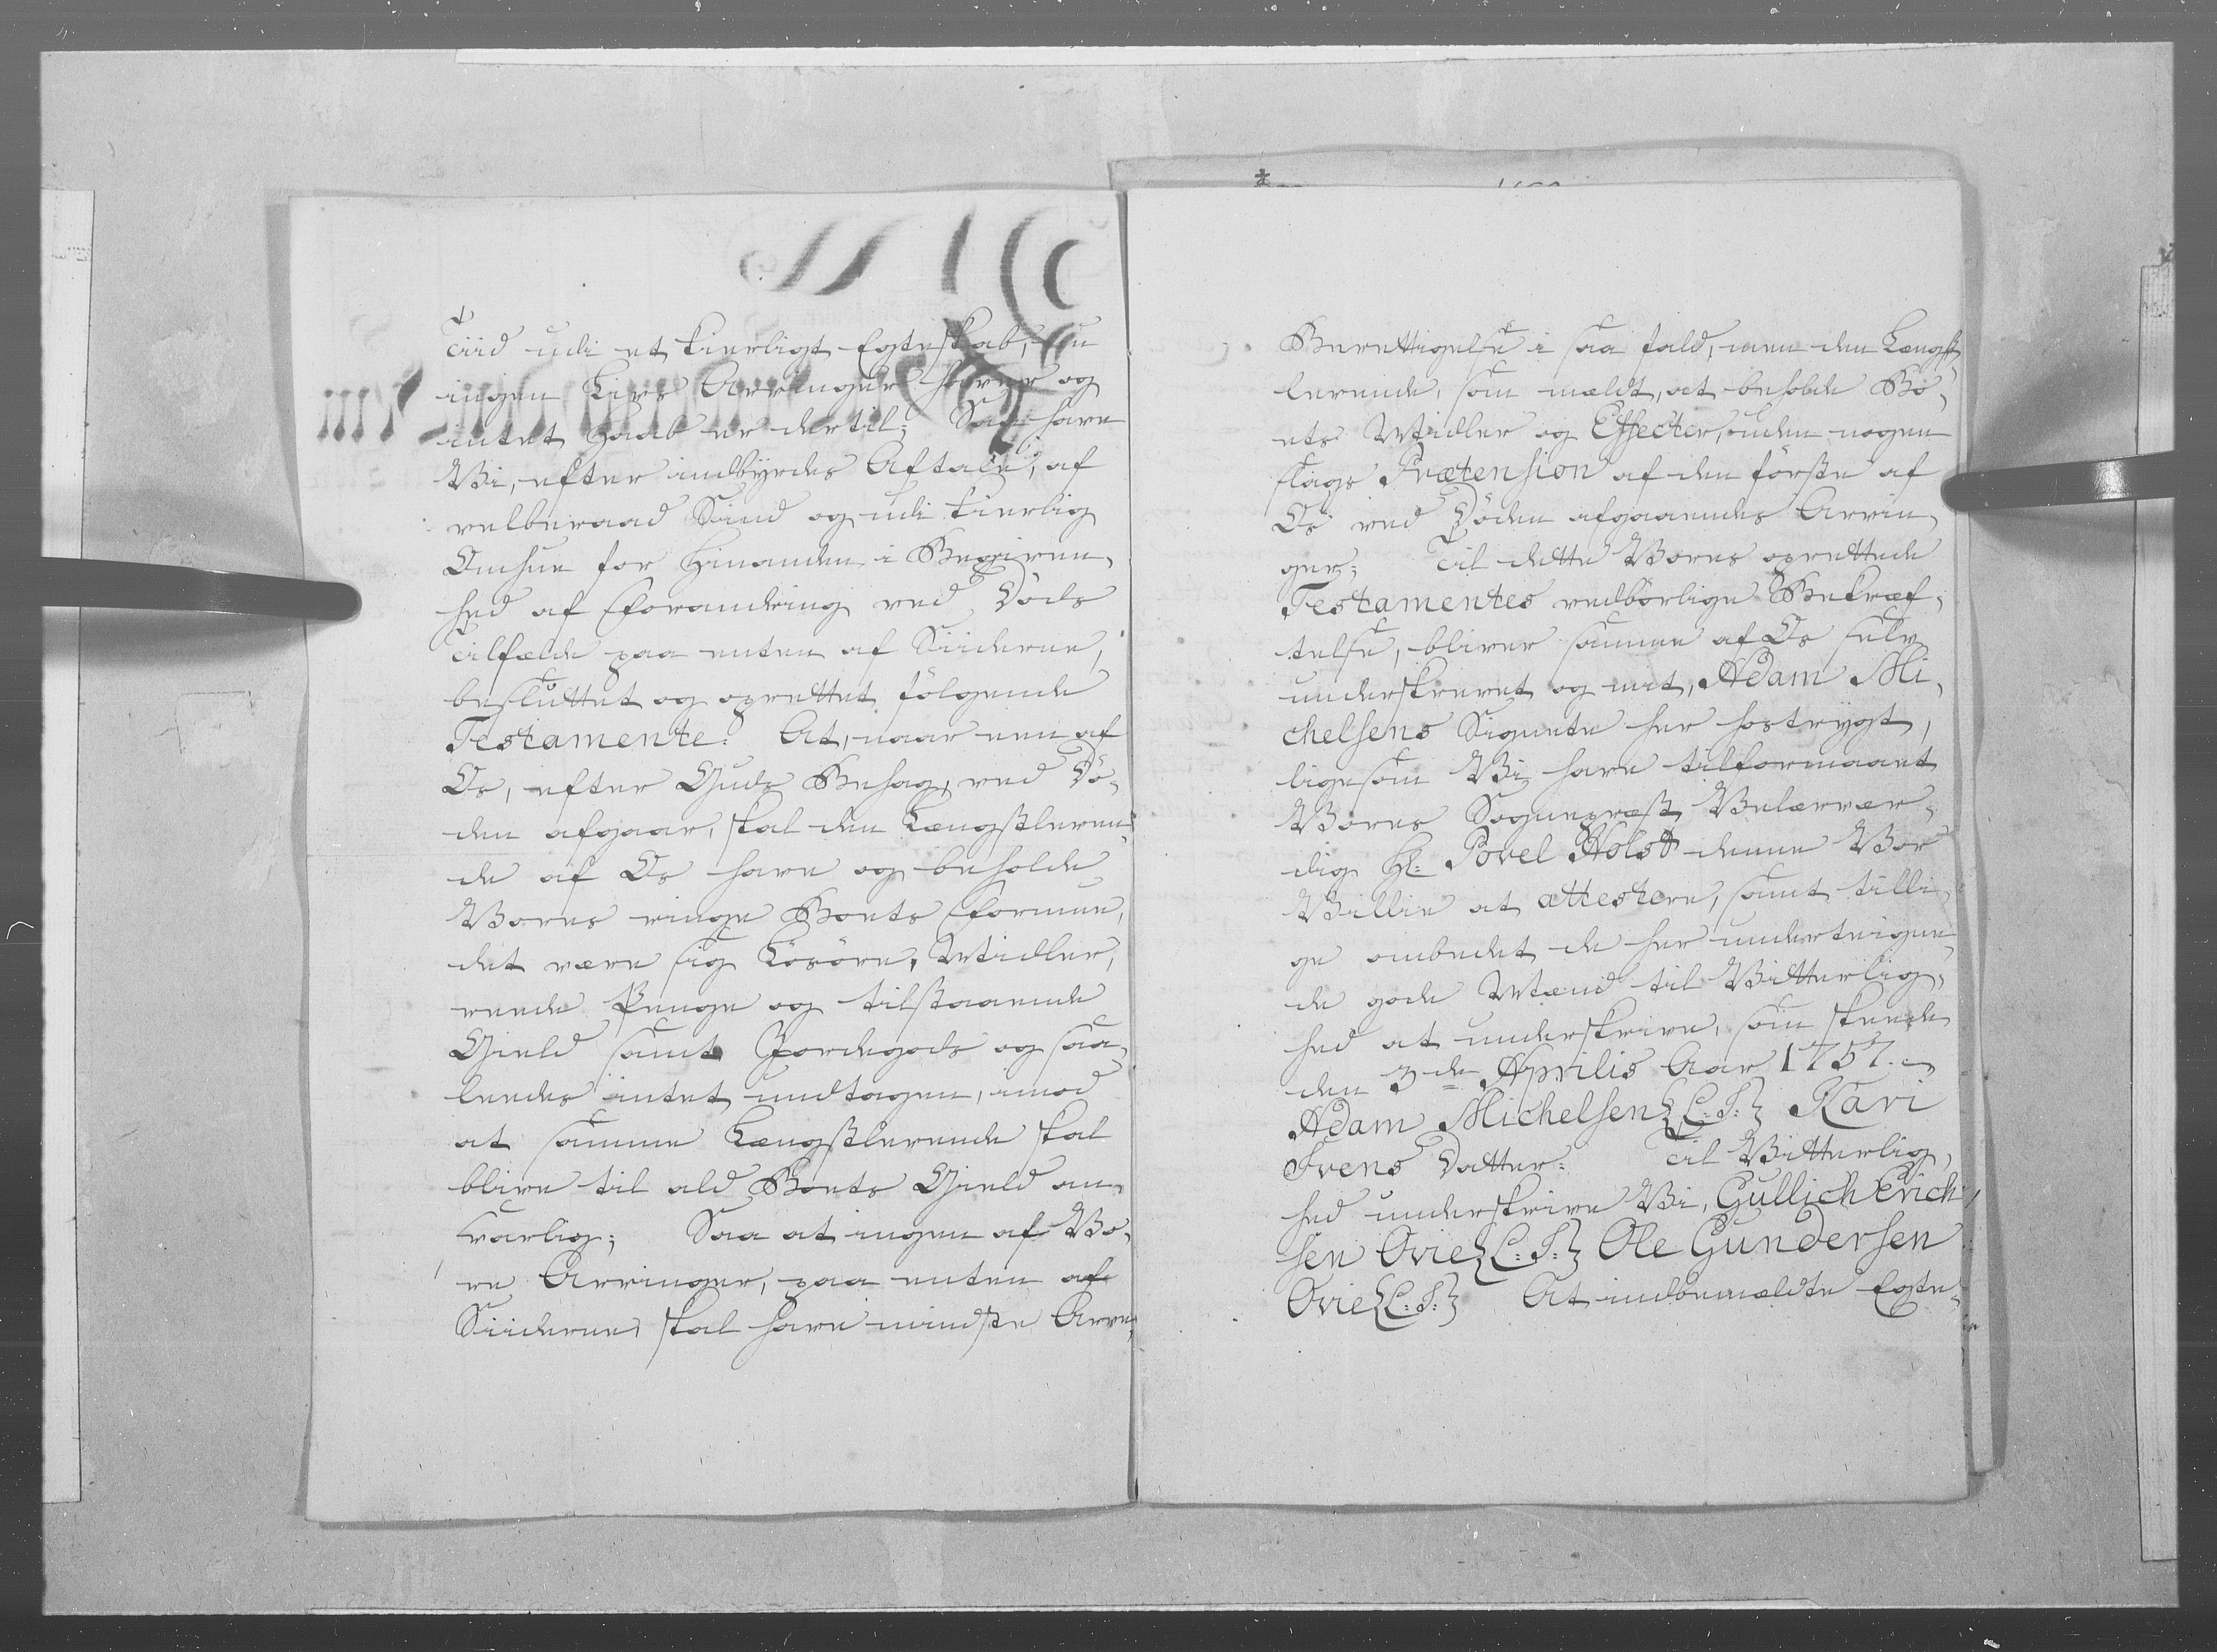 Tiid udi et kierligt Egteskab, nu
ingen Livs Arvinger haver og
intet Haab er dertil; Saa have
Vi, efter indbyrdes Aftale, af
velberaad Sind og udi kierlig
Omhue for Hinanden i Begiven-
hed af Forandring ved Døds
Tilfælde paa enten af Siiderne,
besluttet og oprettet følgende
Testamente: At, naar een af
Os, efter Guds Behag, ved Dø-
den afgaar, skal den Længstleven-
de af Os have og beholde
Vores ringe Boets Formue,
det være sig Løsøre, Midler,
reede Penge og tilstaaende
Gield samt Jordegods og saa-
leedes intet undtagen, imod
at samme Længstlevende skal
blive til ald Boets Gield an-
svarlig; Saa at ingen af Vo-
re Arvinger, paa enten af
Siiderne skal have mindste Arve
Berettigelse i saa fald, men den Længst
levende, som meldt, at beholde Bo-
ets Midler og Effecter, uden nogen
slags Prætension af den første af
Os ved Døden afgaaendes Arvin-
ger; Til dette Vores oprettede
Testamentes vedbørlige Bekræf-
telse, bliver samme af Os selv
underskrevet og mit, Adam Mi-
chelsens Signete her hostrygt,
ligesom Vi have tilformaaet
Vores Sognepræst Velærvær-
dig Hr: Povel Holst denne Vor
Villie at attestere, samt tilli-
ge ombedet de her underteigne-
de gode Mænd til Vitterlig-
hed at underskrive, som skeede
den 3de Aprilis Aar 1757.
Adam Michelsen {L:S:} Kari
Ivens Datter: Til Vitterlig-
hed underskrive Vi, Gullich Erich-
sen Ovie {L:S:} Ole Gundersen
Ovie {L:S:} At indbemeldte Egte-